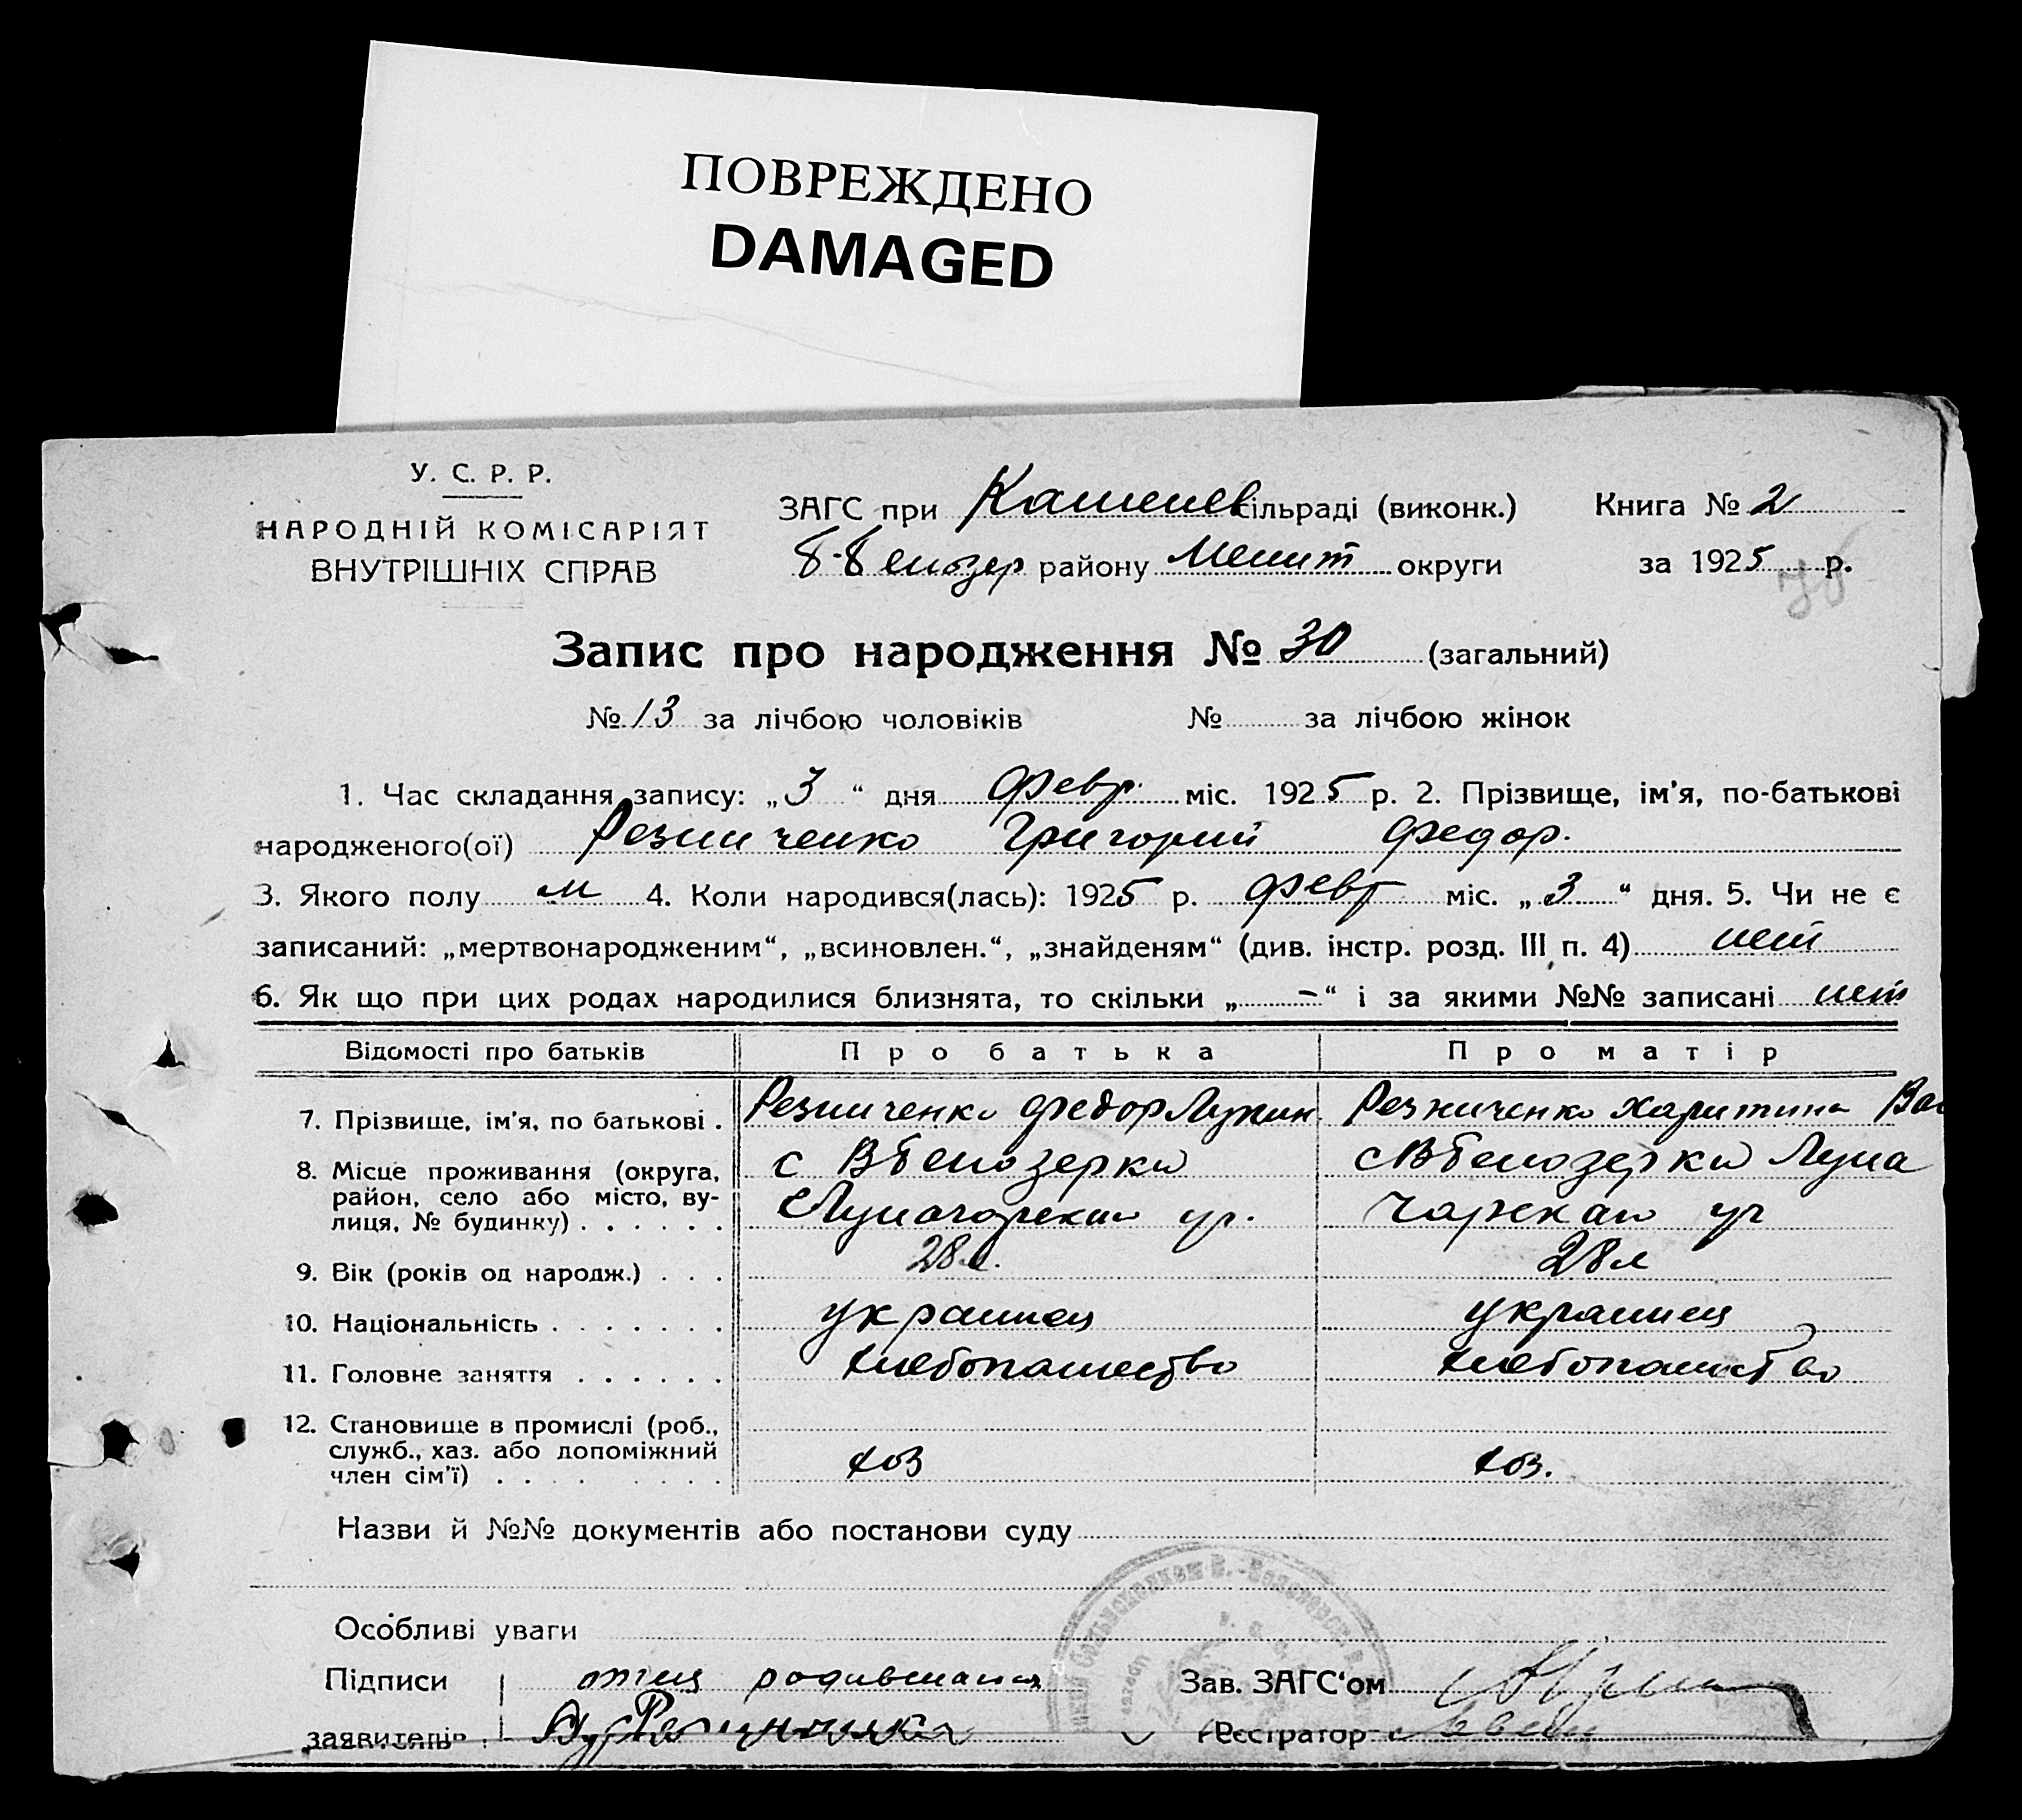 ПОВРЕЖДЕНО
DAMAGED
У. С. Р. Р.
НАРОДНІЙ КОМІСАРІЯТ
ВНУТРІШНІХ СПРАВ
ЗАГС при сільраді (виконк.)
району Мелит округи
Книга № 2
за 1925 р.
Запис про народження № 30 (загальний)
№ 13 за лічбою чоловіків № за лічбою жінок
1. Час складання запису: „3“ дня Февр. міс. 1925 р. 2. Прізвище, ім'я, по-батькові
народженого(ої) Резниченко Григорий Федор.
3. Якого полу м 4. Коли народився(лась): 1925 р. Февр міс. „3“ дня. 5. Чи не є
записаний: „мертвонародженим“, „всиновлен.“, „знайденям“ (див. інстр. розд. III п. 4) нет
6. Як що при цих родах народилися близнята, то скільки „-“ і за якими №№ записані нет
Відомості про батьків Про батька Про матір
7. Прізвище, ім'я, по батькові . Резниченко Федор Лукин. Резниченко Харитина Ва
8. Місце проживання (округа, с ВБелозерки с ВБелозерки Луна
район, село або місто, ву- Луначарская ул. чарская ул
лиця, № будинку) . . . . . .
9. Вік (років од народж.) . . . 28 л. 28 л
10. Національність . . . . . . . украинец украинец
11. Головне заняття . . . . . . хлебопашество хлебопашество
12. Становище в промислі (роб.,
служб., хаз. або допоміжний хоз хоз.
член сім'ї) . . . . . . . . .
Назви й №№ документів або постанови суду
Особливі уваги
Підписи отец родившагося Зав. ЗАГС'ом
заявителів Реєстратор